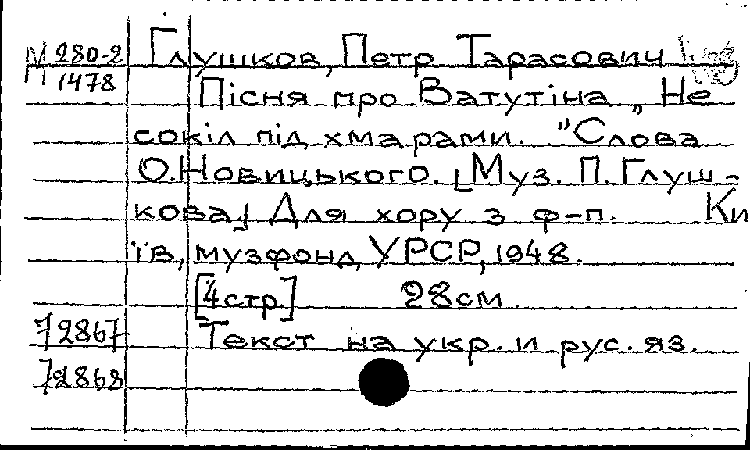 М 280-2 Глушков, Петр Тарасович
1478 Пісня про Ватутіна „Не
сокіл під хмарами." Слова
О.Новицького. [Муз. П. Глуш-
кова] Для хору з ф-п. Ки
їв, музфонд УРСР, 1948.
[4стр] 28см.
72867 Текст на укр. и рус. яз.
72868